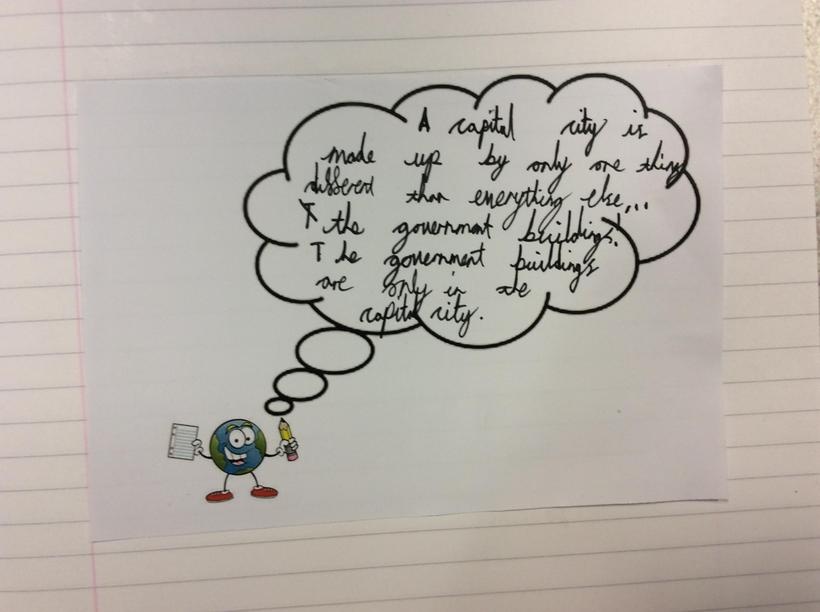 A capital city is
made up by only one thing
different than everything else...
T the government buildings!
The government buildings
are only in the
capital city.